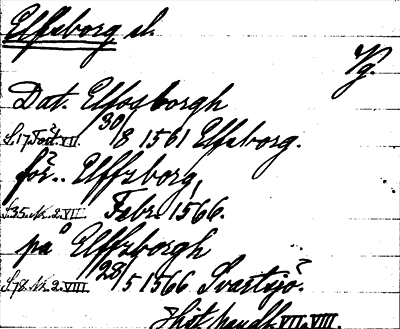 Elfsborg sl.
Vg.
Dat. Elfosborgh
S.17 Fört. VII. 30/8 1561 Elfsborg.
för.. Elffzborg,
S.35. Nr. 2. VII. Febr. 1566.
på Elffzborgh
S.78. Nr. 2. VIII. 28/5 1566 Svartsjö.
Hist. handl. VII. VIII.